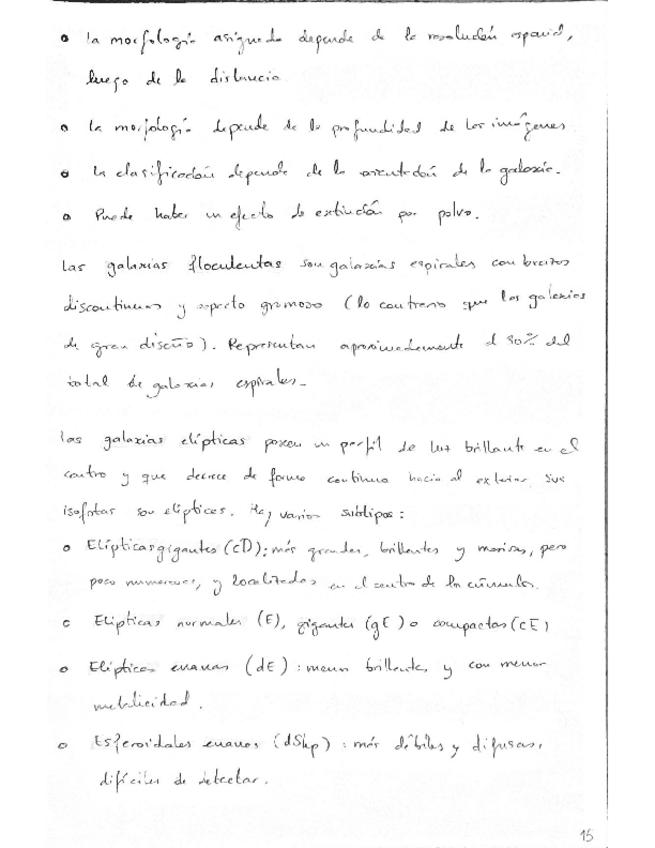 • La morfología asignada depende de la resolución espacial,
luego de la distancia.
• La morfología depende de la profundidad de las imágenes
• La clasificación depende de la orientación de la galaxia.
• Puede haber un efecto de extinción por polvo.
Las galaxias floculentas son galaxias espirales con brazos
discontinuos y aspecto grumoso (lo contrario que las galaxias
de gran diseño). Representan aproximadamente el % del
total de galaxias espirales.
Las galaxias elípticas poseen un perfil de luz brillante en el
centro y que decrece de forma continua hacia el exterior. Sus
isofotas son elípticas. Hay varios subtipos:
• Elípticas gigantes (cD): más grandes, brillantes y masivas, pero
poco numerosas, y localizadas en el centro de los cúmulos.
• Elípticas normales (E), gigantes (gE) o compactas (cE)
• Elípticas enanas (dE): menos brillantes, y con menor
metalicidad.
• Esferoidales enanas (dShp): más débiles y difusas,
difíciles de detectar.
15